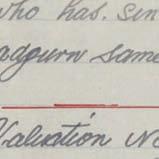 who has. sin
adjourn same
Valuation No